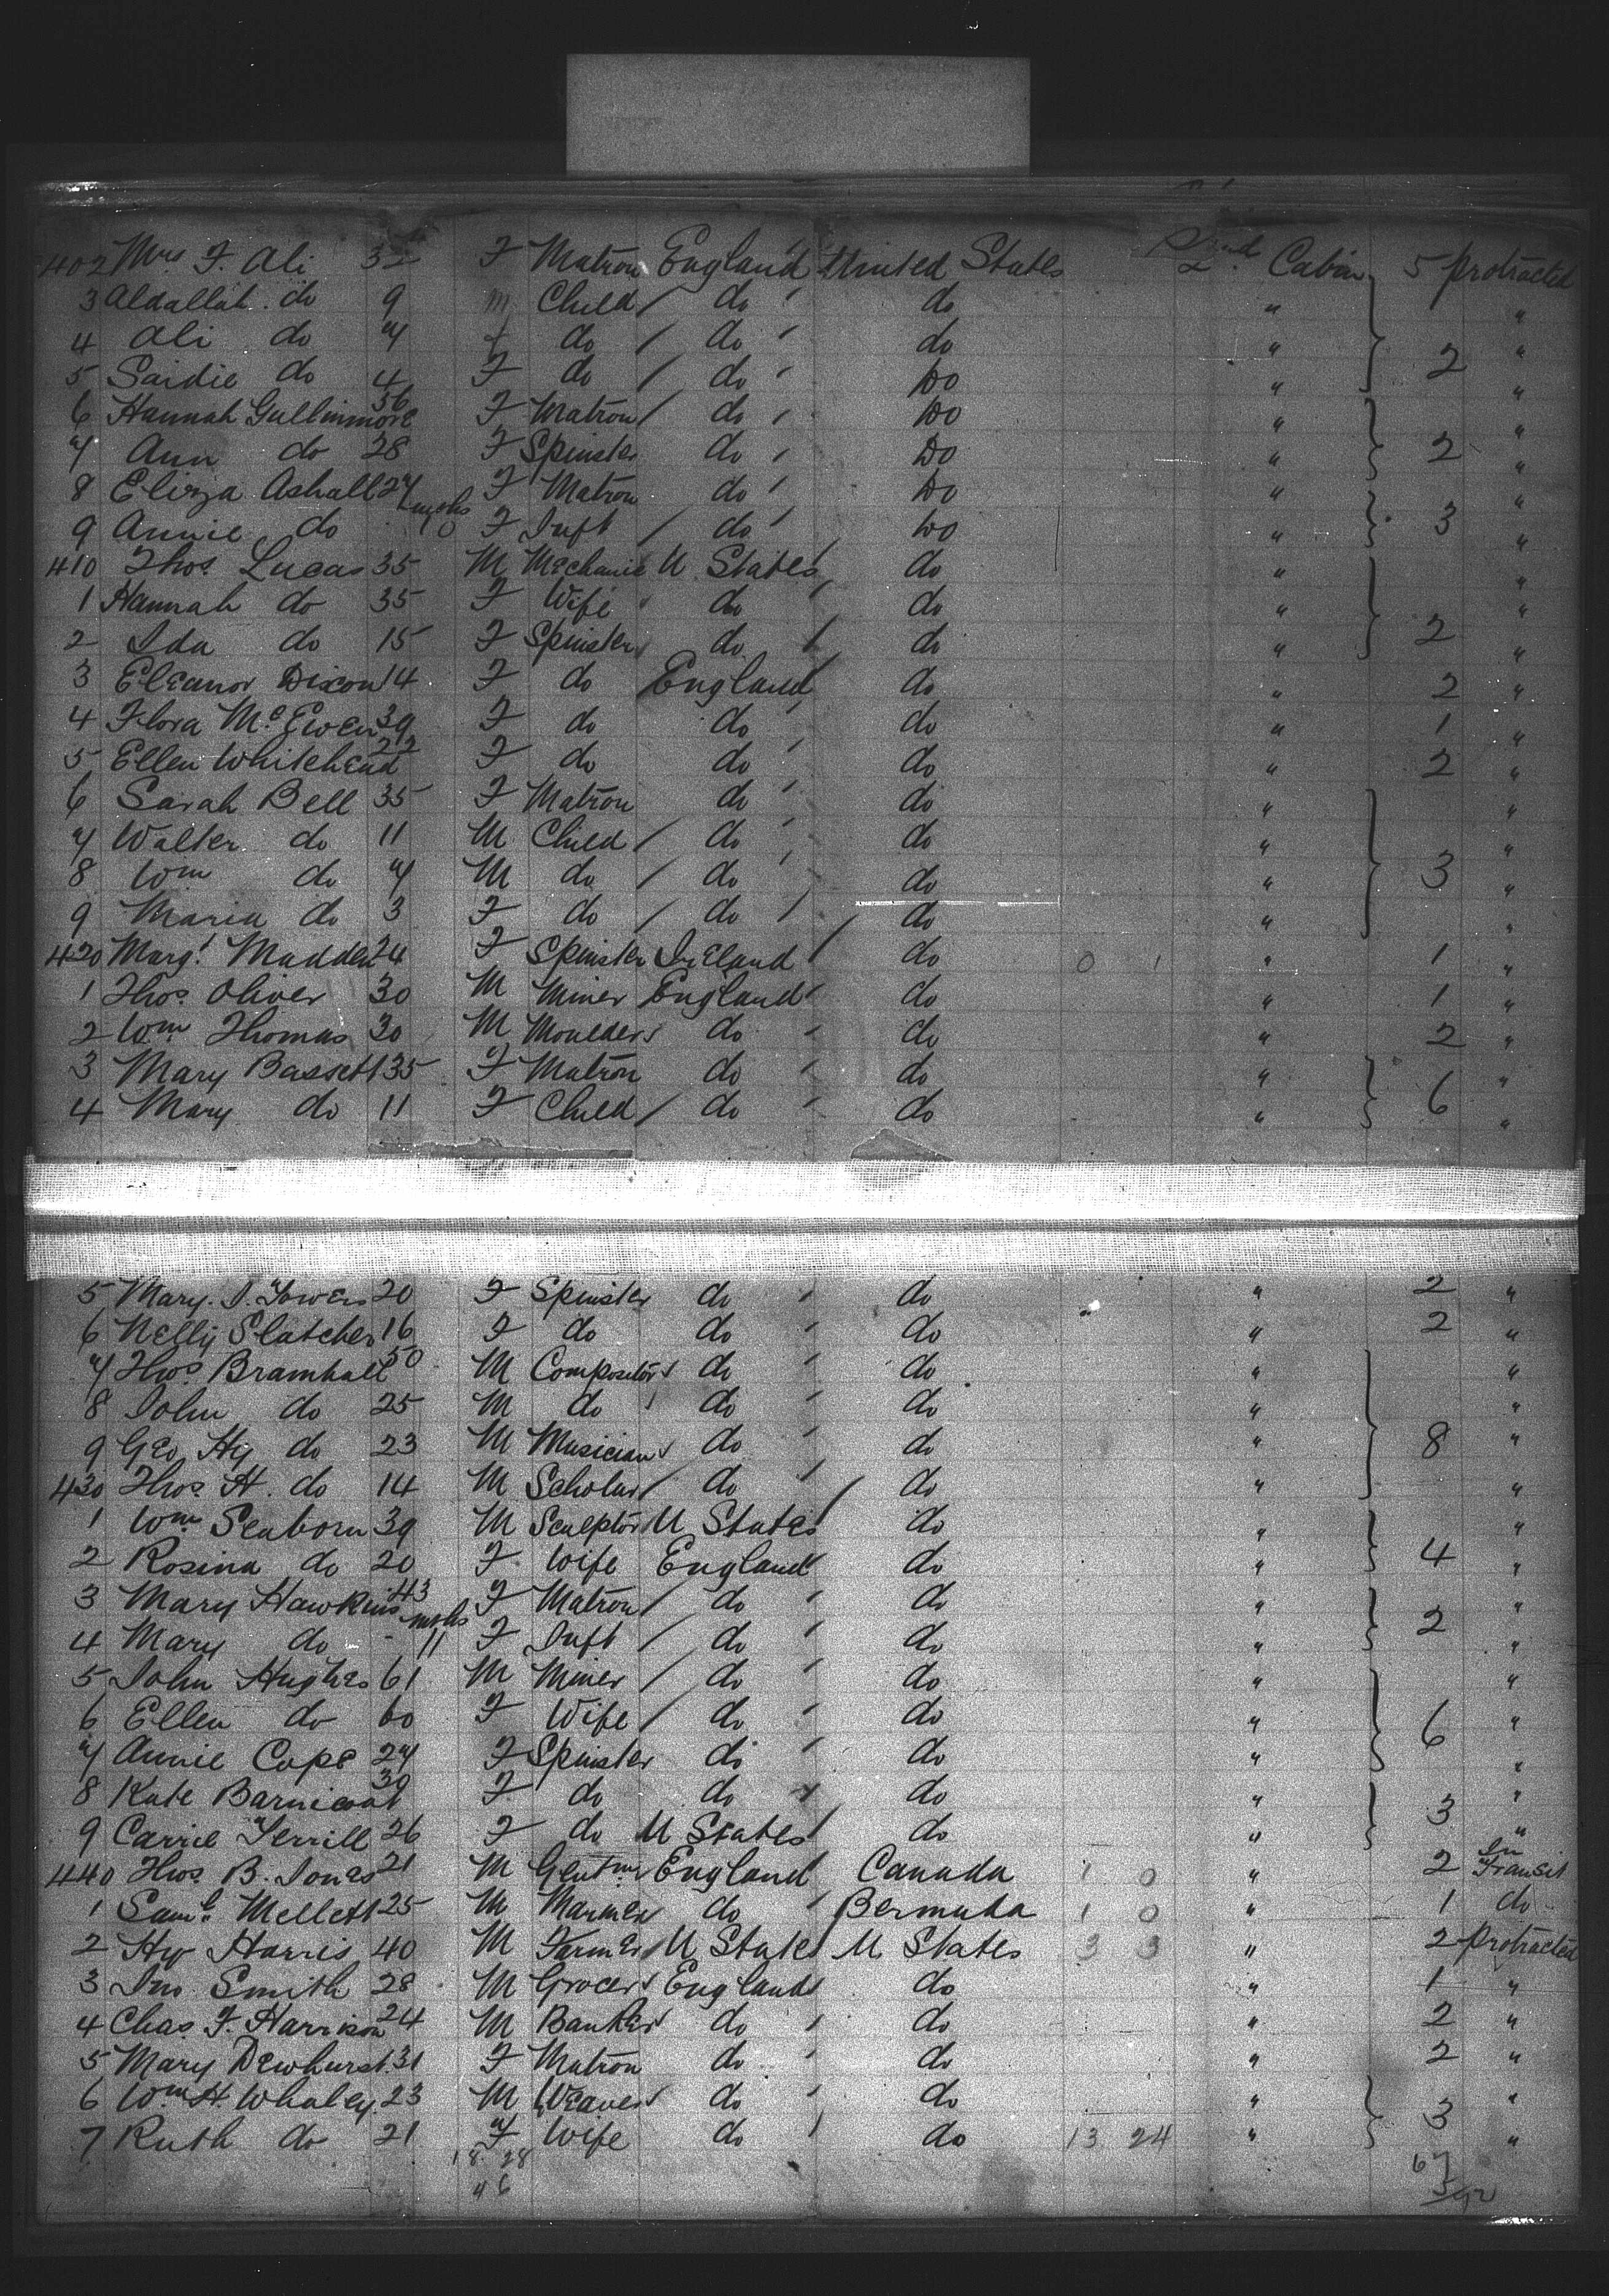 402 Mrs F. Ali 32 F Matron England United States 2nd Cabin 5 protracted
3 Aldallah do 9 m Child / do do " "
4 Ali do 7 f do / do do " 2 "
5 Saidie do 4 F do / do Do " "
6 Hannah Gullinmore 56 F Matron / do Do " "
7 Ann do 28 F Spinster do Do " 2 "
8 Eliza Ashall 27 F Matron do Do " "
9 Annie do mths 10 F Inft / do Do " 3 "
410 Thos. Lucas 35 M Mechanic U States do " "
1 Hannah do 35 F Wife do do " "
2 Ida do 15 F Spinster do do " 2 "
3 Eleanor Dixon 14 F do England do " 2 "
4 Flora Mc.Ewen 39 F do do do " 1 "
5 Ellen Whitehead 22 F do do do " 2 "
6 Sarah Bell 35 F Matron do do " "
7 Walter do 11 M Child / do do " "
8 Wm do 7 M do / do do " 3 "
9 Maria do 3 F do / do do " "
420 Margt. Madden 24 F Spinster Ireland do 0 1 " 1 "
1 Thos. Oliver 30 M Miner England do " 1 "
2 Wm Thomas 30 M Moulder do do " 2 "
3 Mary Bassett 35 F Matron do do " "
4 Mary do 11 F Child / do do " 6 "
5 Mary. I. Towers 20 F Spinster do do " 2 "
6 Nelly Slatcher 16 F do do do " 2 "
7 Thos. Bramhall 50 M Compositor do do " "
8 John do 25 M do do do " "
9 Geo Hy do 23 M Musician do do " 8 "
430 Thos. H. do 14 M Scholar / do do " "
1 Wm Seaborn 39 M Sculptor U States do " "
2 Rosina do 20 F Wife England do " 4 "
3 Mary Hawkins 43 F Matron / do do " "
4 Mary do mths 11 F Inft / do do " 2 "
5 John Hughes 61 M Miner / do do " "
6 Ellen do 60 F Wife / do do " 6 "
7 Annie Cope 27 F Spinster do do " "
8 Kate Barnicoat 30 F do do do " "
9 Carrie Terrill 26 F do U States do " 3 "
440 Thos. B. Jones 21 M Gentmn England Canada 1 0 " 2 In Transit
1 Saml. Mellett 25 M Mariner do Bermuda 1 0 " 1 do
2 Hy Harris 40 M Farmer U States U States 3 3 " 2 protracted
3 Jno Smith 28 M Grocer England do " 1 "
4 Chas. F. Harrison 24 M Banker do do " 2 "
5 Mary Dewhurst 31 F Matron do do " 2 "
6 Wm H. Whaley 23 M Weaver do do " "
7 Ruth do 21 F Wife do do 13 24 " 3 "
18 28 67
46